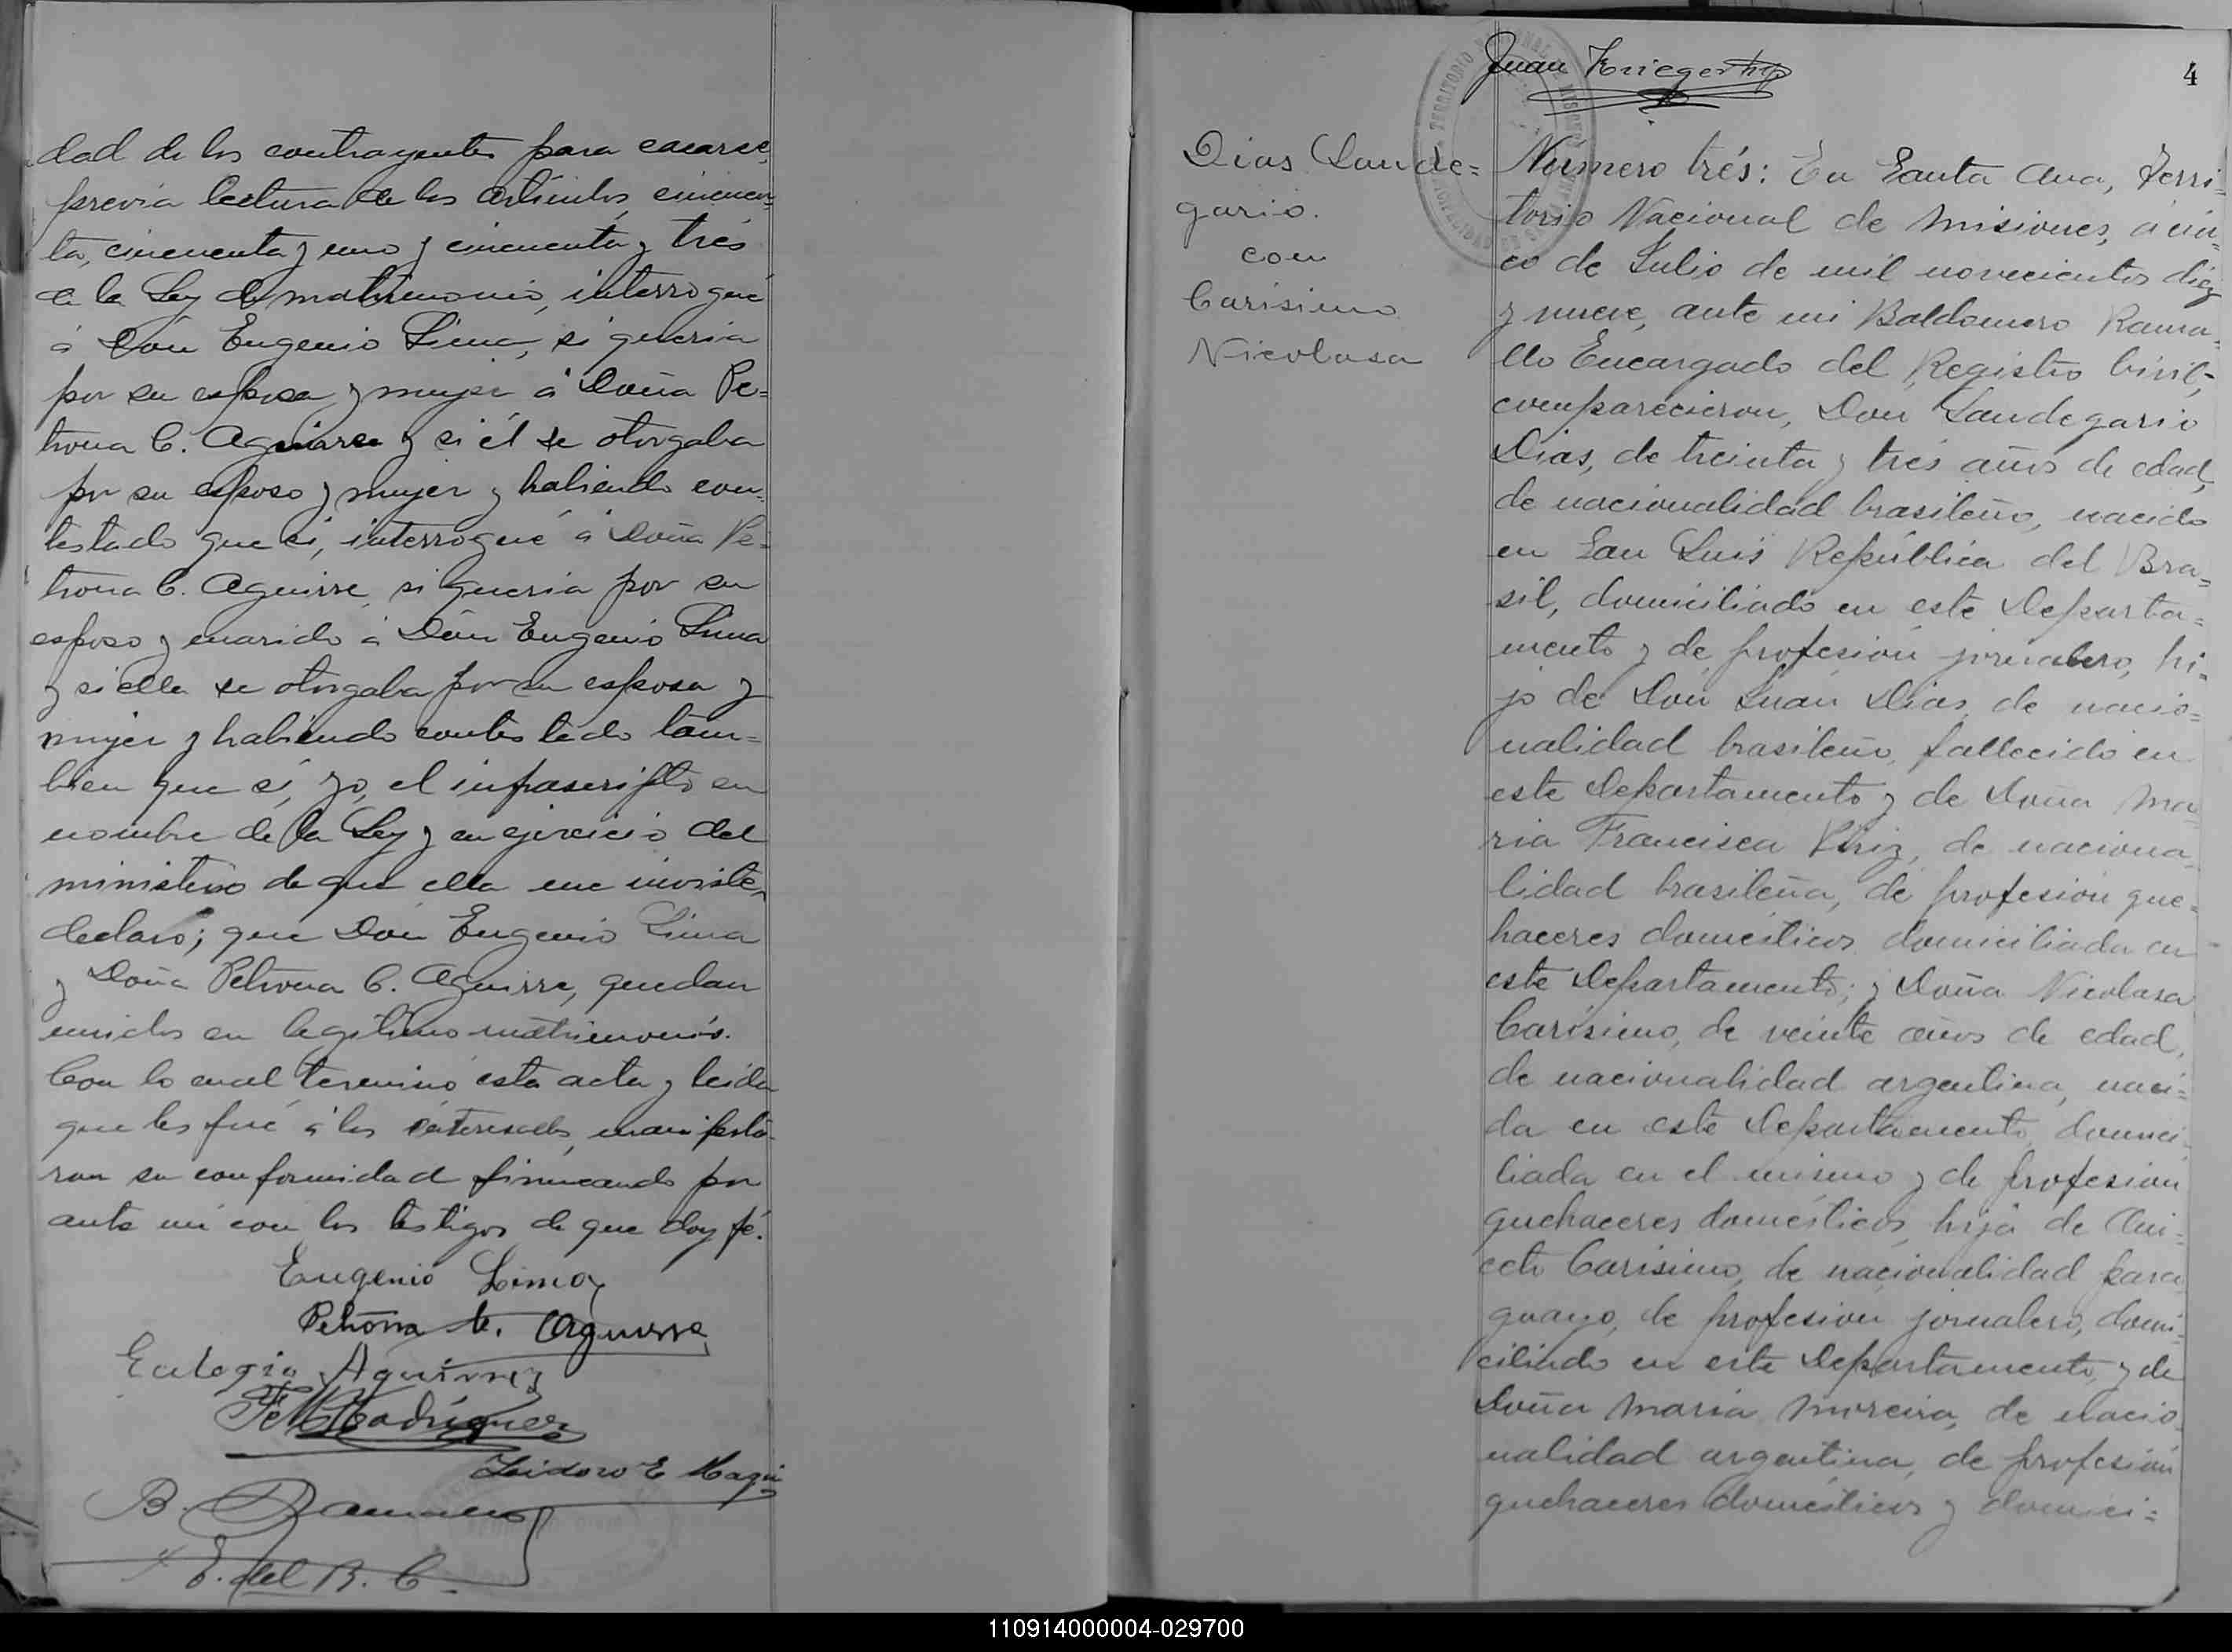 dad de los contrayentes para casarse,
previa lectura de los artículos cincuen-
ta, cincuenta y uno y cincuenta y trés
de la Ley de matrimonio, interrogué
á Don Eugenio Lima, si queria
por su esposa y mujer á Doña Pe=
trona C. Aguirre y si él se otorgaba
por su esposo y mujer y habiendo con-
testado que si, interrogué á Doña Pe=
trona C. Aguirre, si queria por su
esposo y marido á Don Eugenio Lima
y si ella se otorgaba por su esposa y
mujer y habiendo contestado tam=
bien que sí, yo, el infrascripto en
nombre de la Ley y en ejercicio del
ministerio de que ella me inviste,
declaro; que Don Eugenio Lima
y Doña Petrona C. Aguirre, quedan
unidos en legítimo matrimonio.
Con lo cual terminó esta acta y leida
que les fué á los interesados, manifesta-
ron su conformidad firmando por
ante mi con los testigos de que doy fé.
Eugenio Lima
Petrona C. Aguirre
Eulogio Aguirre
Rodríguez
Isidoro E
B. Ramallo
E. del R. C.
Juan Krieger
4
Dias Laude=
gario.
con
Carísimo
Nicolasa
Número trés: En Santa Ana, Terri=
torio Nacional de Misiones, á cin=
co de Julio de mil novecientos diez
y nueve, ante mi Baldomero Rama=
llo Encargado del Registro Civil,
comparecieron, Don Laudegario
Dias, de treinta y trés años de edad,
de nacionalidad brasileño, nacido
en San Luis República del Bra=
sil, domiciliado en este Departa=
mento y de profesión jornalero, hi=
jo de Don Juan Dias, de nacio=
nalidad brasileño, fallecido en
este Departamento y de Doña Ma
ria Francisca de naciona
lidad brasileña, de profesión que=
haceres domésticos domiciliada en
este Departamento; y Doña Nicolasa
Carísimo, de veinte años de edad,
de nacionalidad argentina, naci=
da en este Departamento, domici-
liada en el mismo y de profesion
quehaceres domésticos, hija de Ani=
ceto Carisimo, de nacionalidad para
guayo, de profesion jornalero, domi=
ciliado en este Departamento, y de
Doña Maria Moreira, de nacio
nalidad argentina, de profesión
quehaceres domésticos y domici=
110914000004-029700